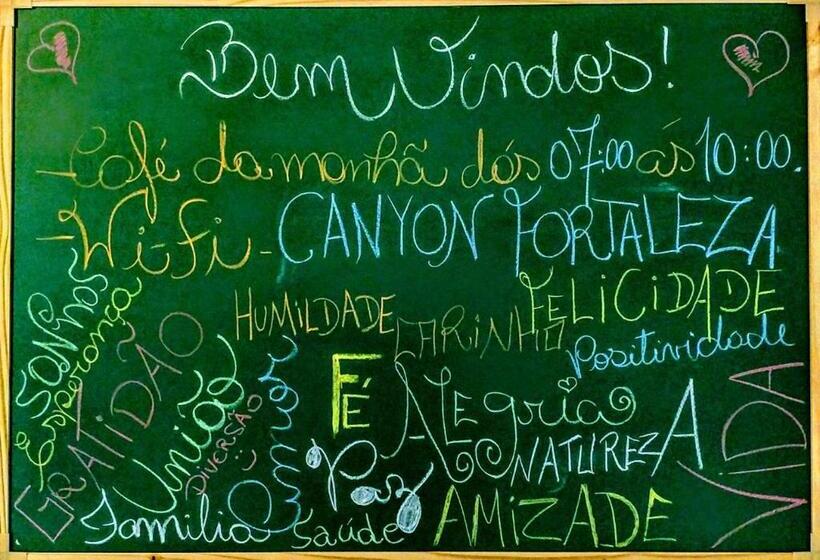 Bem Vindos!
- Café da manhã dás 07:00 ás 10:00.
- Wi-Fi - CANYON FORTALEZA
SONHOS
Esperança
GRATIDÃO
União
DIVERSÃO
Amor
HUMILDADE
CARINHO
FELiCiDADE
Positividade
FÉ
ALEgria
NATUREZA
Paz
ViDA
Família
Saúde
AMiZADE